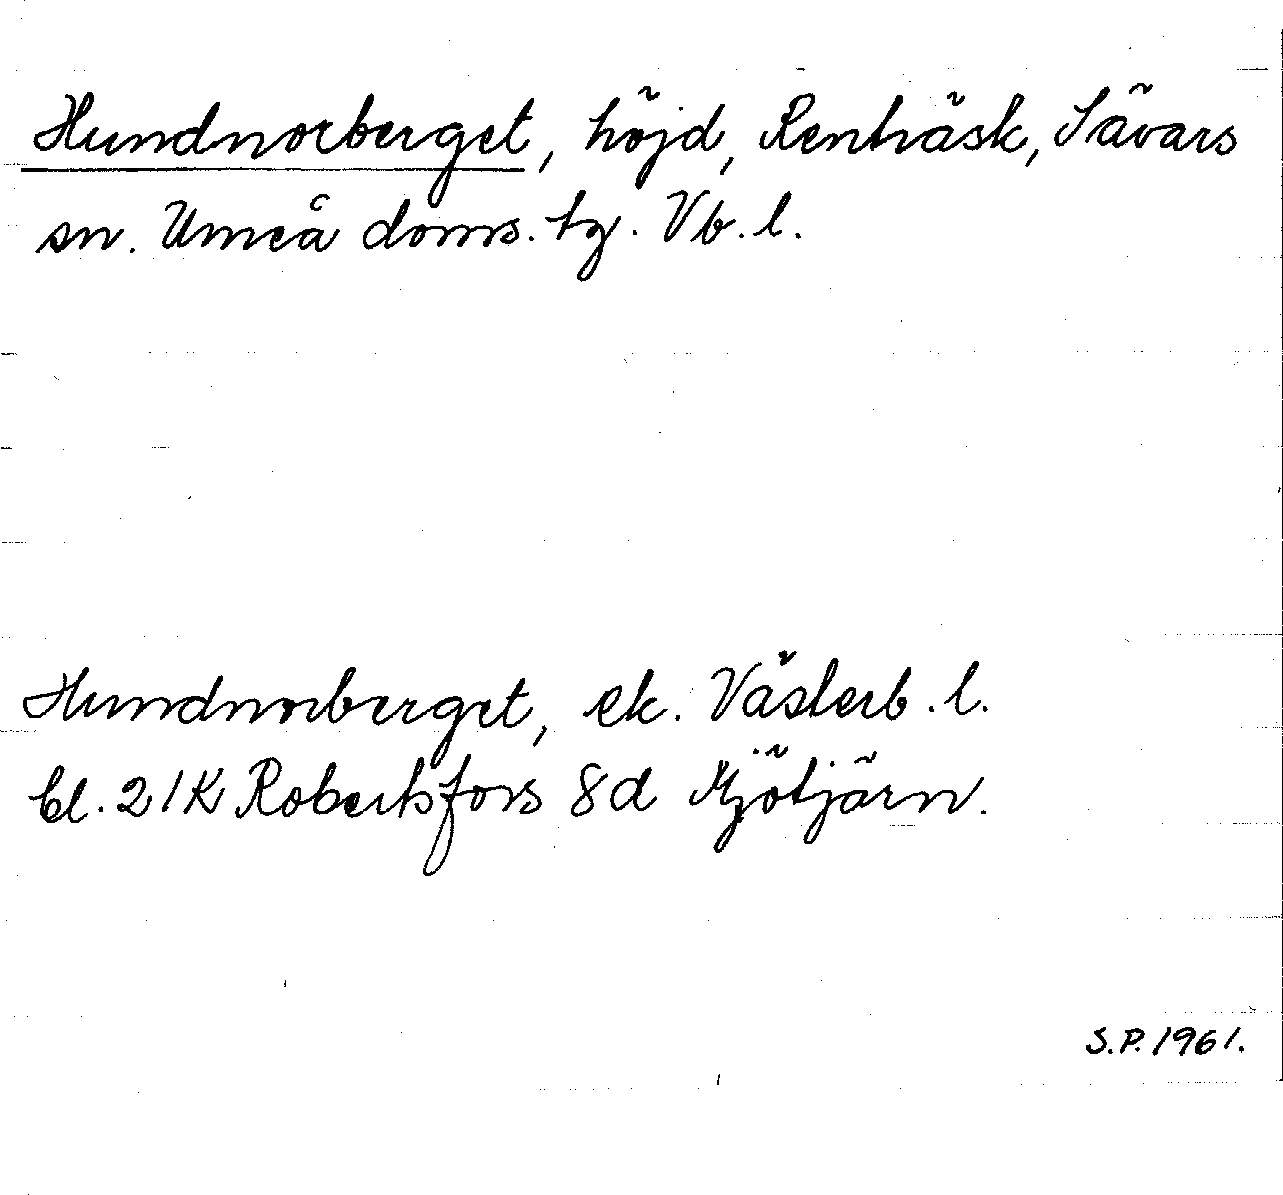 Hundnorberget, höjd, Renträsk, Sävars
sn. Umeå doms. tg. Vb. l.
Hundnorberget, ek. Västerb. l.
bl. 21K Robertsfors 8d Mjötjärn.
S.P. 1961.